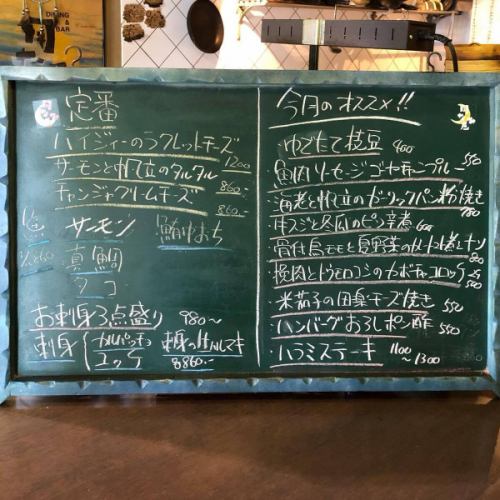 DINING & BAR
定番
ハイジィーのラクレットチーズ 1200
サーモンと帆立のタルタル 860.-
チャンジャクリームチーズ 860.-
サーモン 鮪中おち
真鯛
タコ
お刺身3点盛り 980〜
刺身 カルパッチョ ユッケ
860.-
今月のオススメ!!
ゆでたて枝豆 400
魚肉ソーセージゴーヤチャンプルー 550
海老と帆立のガーリックパン粉焼き 780
牛スジと冬瓜のピリ辛煮 600
骨付鳥モモと夏野菜のトマト煮込み 800
挽肉とトウモロコシのカボチャコロッケ 500
米茄子の田楽チーズ焼き 550
ハンバーグおろしポン酢 550
ハラミステーキ 1100〜1300